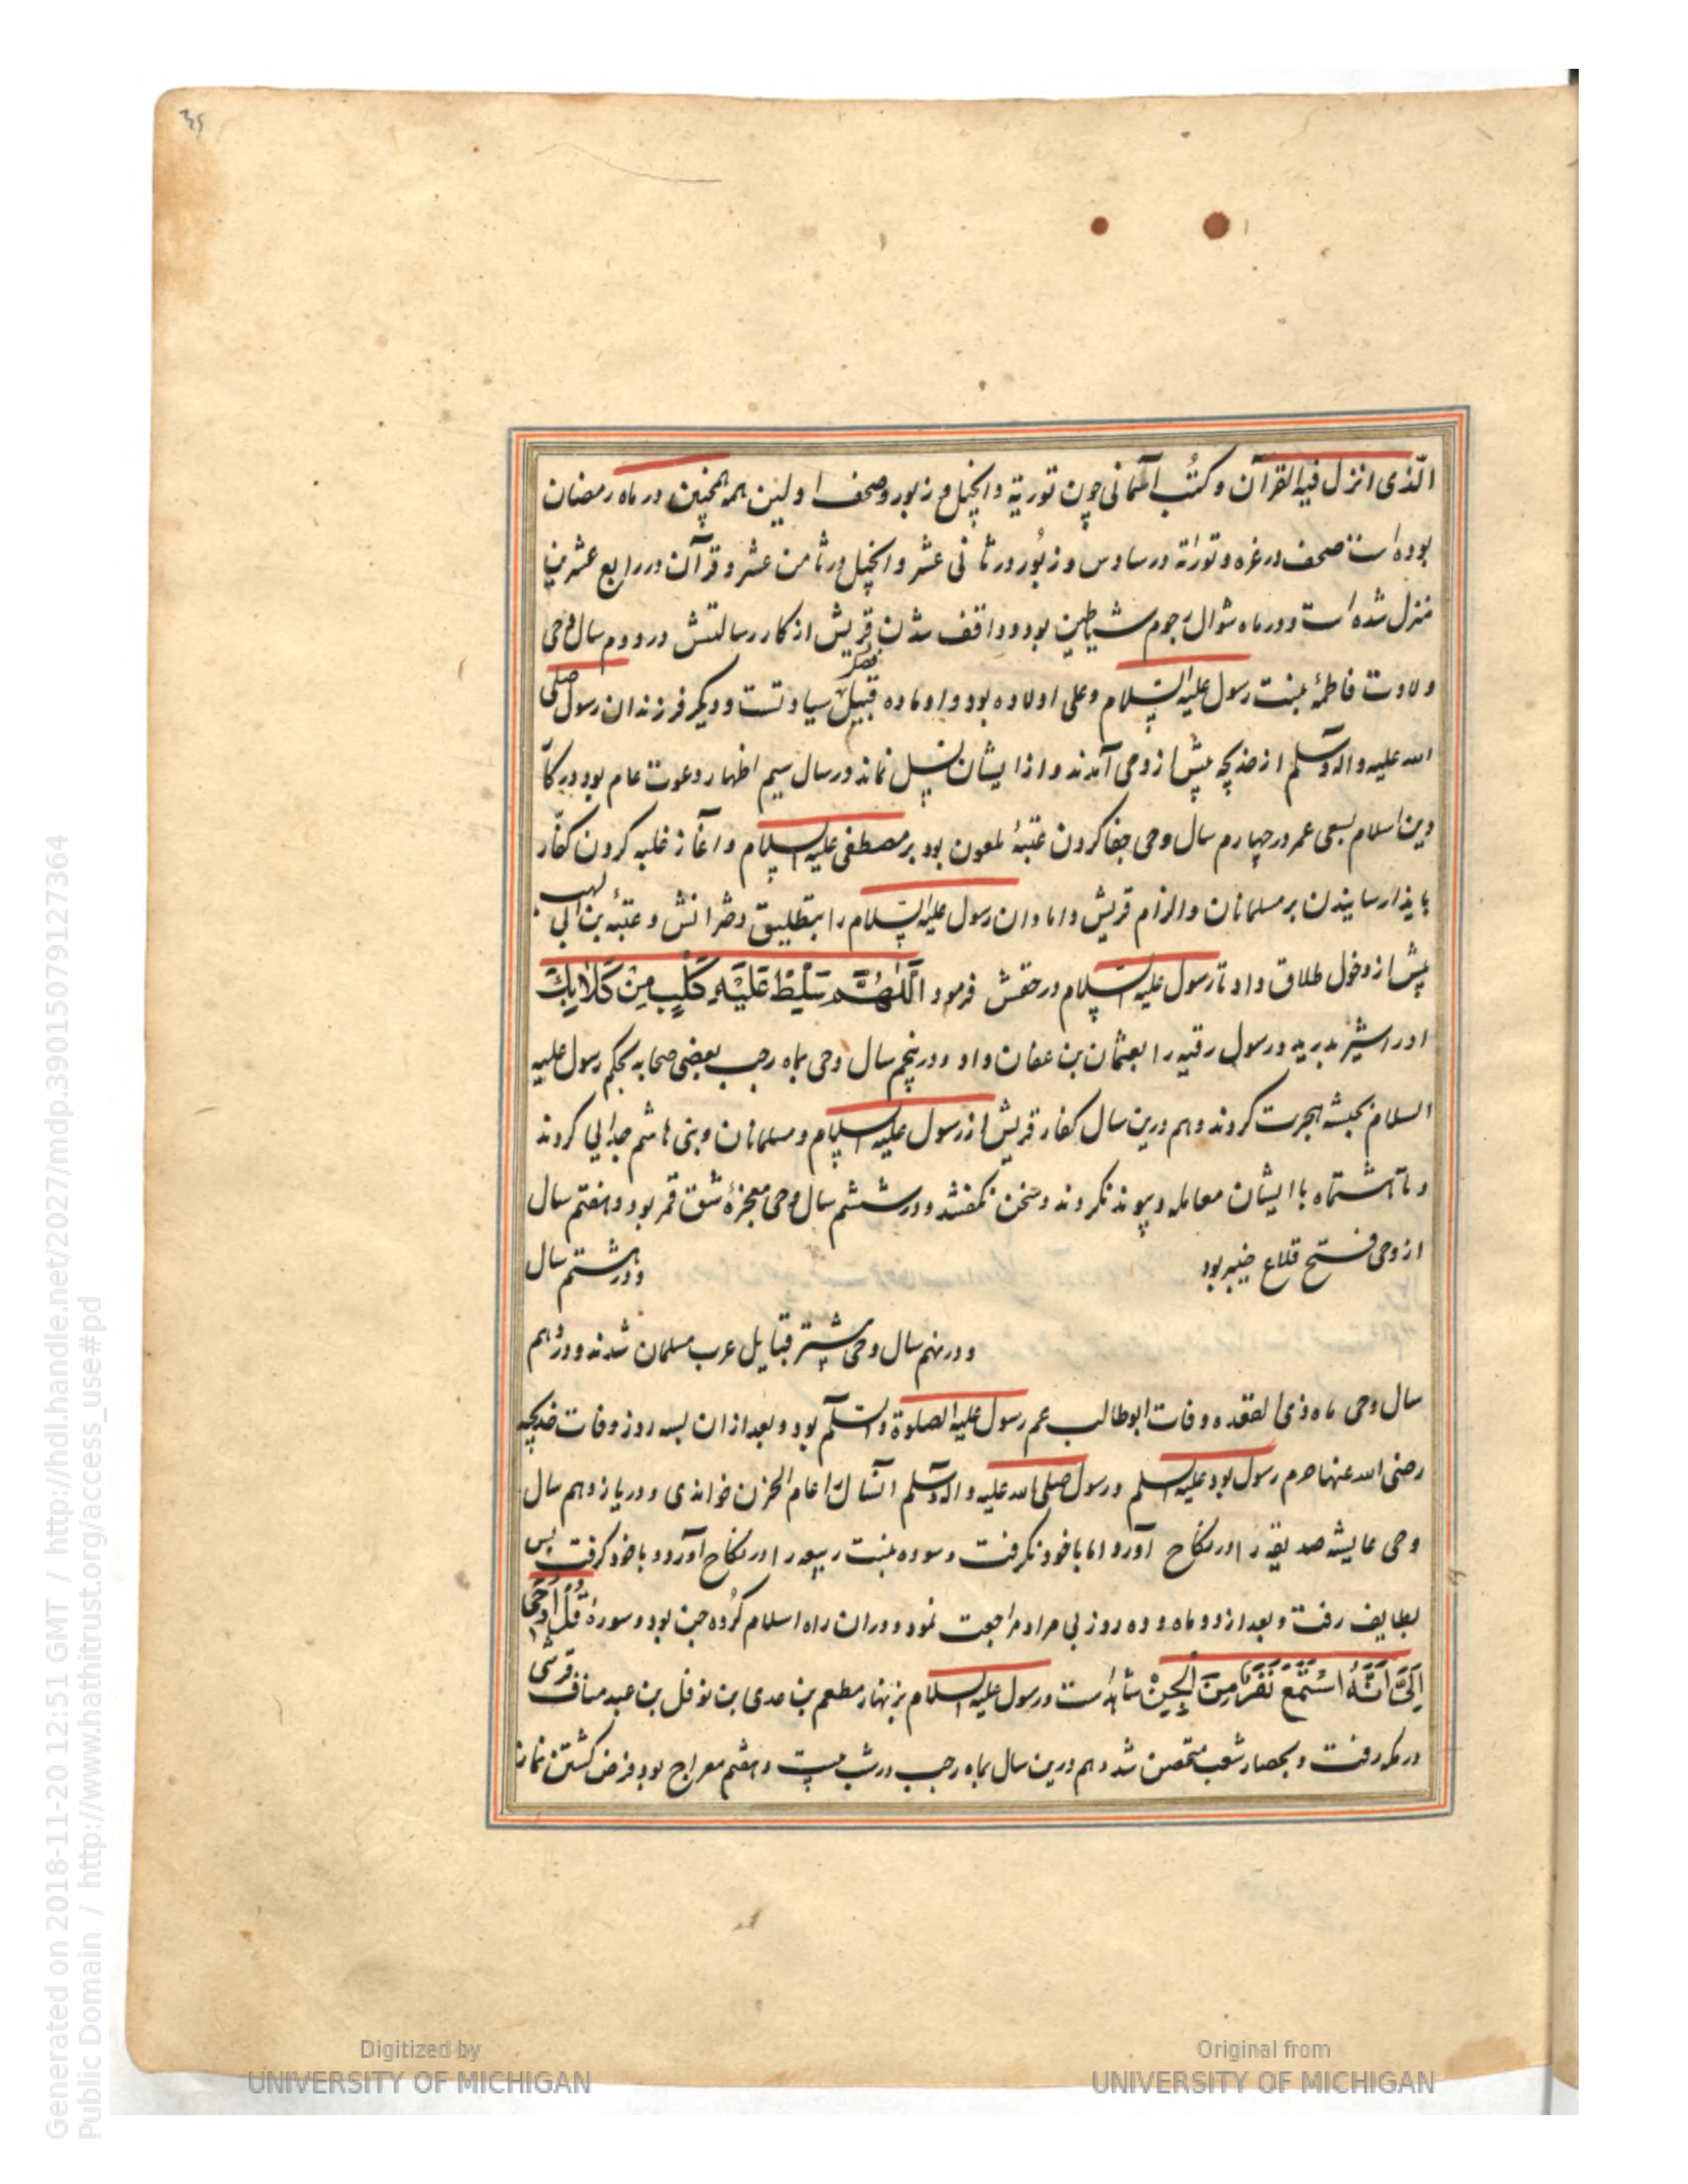 الّذی انزل فیه القرآن وکتُب آسمانی چون توریة وانجیل و زبور وصحف اولین همه همچنین در ماه رمضان
بوده است صحف در غره و توراة در سادس و زبُور در ثانی عشر وانجیل در ثامن عشر و قرآن در رابع عشرین
منزل شده است ودر ماه شوال رجوم شیاطین بود و واقف شدن قریش از کار رسالتش در دوم سال وحی
ولادت فاطمهٔ بنت رسول علیه السلام وعلی اولاده بود واو ماده قبیل سیادتست و دیگر فرزندان رسول صلی
الله علیه واله وسلم از خدیجه پیش از وحی آمدند و از ایشان نسل نماند در سال سیم اظهار دعوت عام بود در کا
دین اسلام بسعی عمر در چهارم سال وحی جفا کردن عتبهٔ ملعون بود بر مصطفی علیه السلام و آغاز غلبه کردن کفّار
بایذا رسانیدن بر مسلمانان والزام قریش دامادان رسول علیه السّلام را بتطلیق دخترانش و عتبهٔ بن ابی لهب
پیش از دخول طلاق داد تا رسول علیه السلام در حقش فرمود اَللّٰهُمَّ سَلِّطْ عَلَیْهِ کَلْبٍ مِنْ کَلاٰبِكَ
او را شیر بدرید ورسول رقیه را بعثمان بن عفان داد و در پنجم سال وحی بماه رجب بعضی صحابه بحکم رسول علیه
السلام بحبشه هجرت کردند وهم درین سال کفار قریش از رسول علیه السلام ومسلمانان وبنی هاشم جدایی کردند
و تا هشت ماه با ایشان معامله و پیوند نکردند و سخن نگفتند و در ششم سال وحی معجزهٔ شق قمر بود و هفتم سال
از وحی فتح قلاع خیبر بود ودر هشتم سال
و در نهم سال وحی بیشتر قبایل عرب مسلمان شدند و در دهم
سال وحی ماه ذی القعده وفات ابوطالب عم رسول علیه الصلوة والسّلم بود وبعد از ان بسه روز وفات خدیجه
رضی الله عنها حرم رسول بود علیه السلم ورسول صلی الله علیه واله وسلم آنسال را عام الحزن خواندی و در یازدهم سال
وحی عایشه صدیقه را در نکاح آورد اما با خود نگرفت و سوده بنت ربیعه را در نکاح آورد و با خود گرفت پس
بطایف رفت و بعد از دو ماه و ده روز بی مراد مراجعت نمود و در ان راه اسلام گروه جن بود و سورهٔ قُلْ اُوحِیَ
اِلَیَّ اَنَّهُ اسْتَمَعَ نَفَرٌ مِنَ الْجِنّْ شاهد است ورسول علیه السلام بزنهار مطعم بن عدی بن نوفل بن عبد مناف قرشی
در مکه رفت و بحصار شعب متحصن شد وهم درین سال بماه رجب در شب بیست و هفتم معراج بود و فرض گشتن نماز
Digitized by
UNIVERSITY OF MICHIGAN
Original from
UNIVERSITY OF MICHIGAN
Generated on 2018-11-20 12:51 GMT / http://hdl.handle.net/2027/mdp.39015079127364
Public Domain / http://www.hathitrust.org/access_use#pd